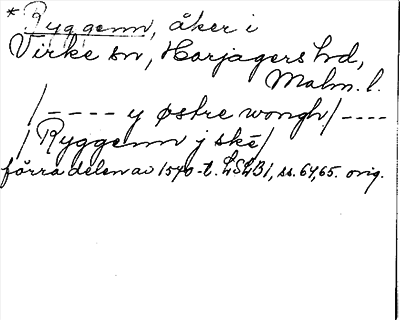 * Ryggenn, åker i
Virke sn, Harjagers hd,
Malm. l.
/---- y østre wongh/----
/Ryggenn j skě/
förra delen av 1540-t. LSLB1, ss. 64, 65. orig.